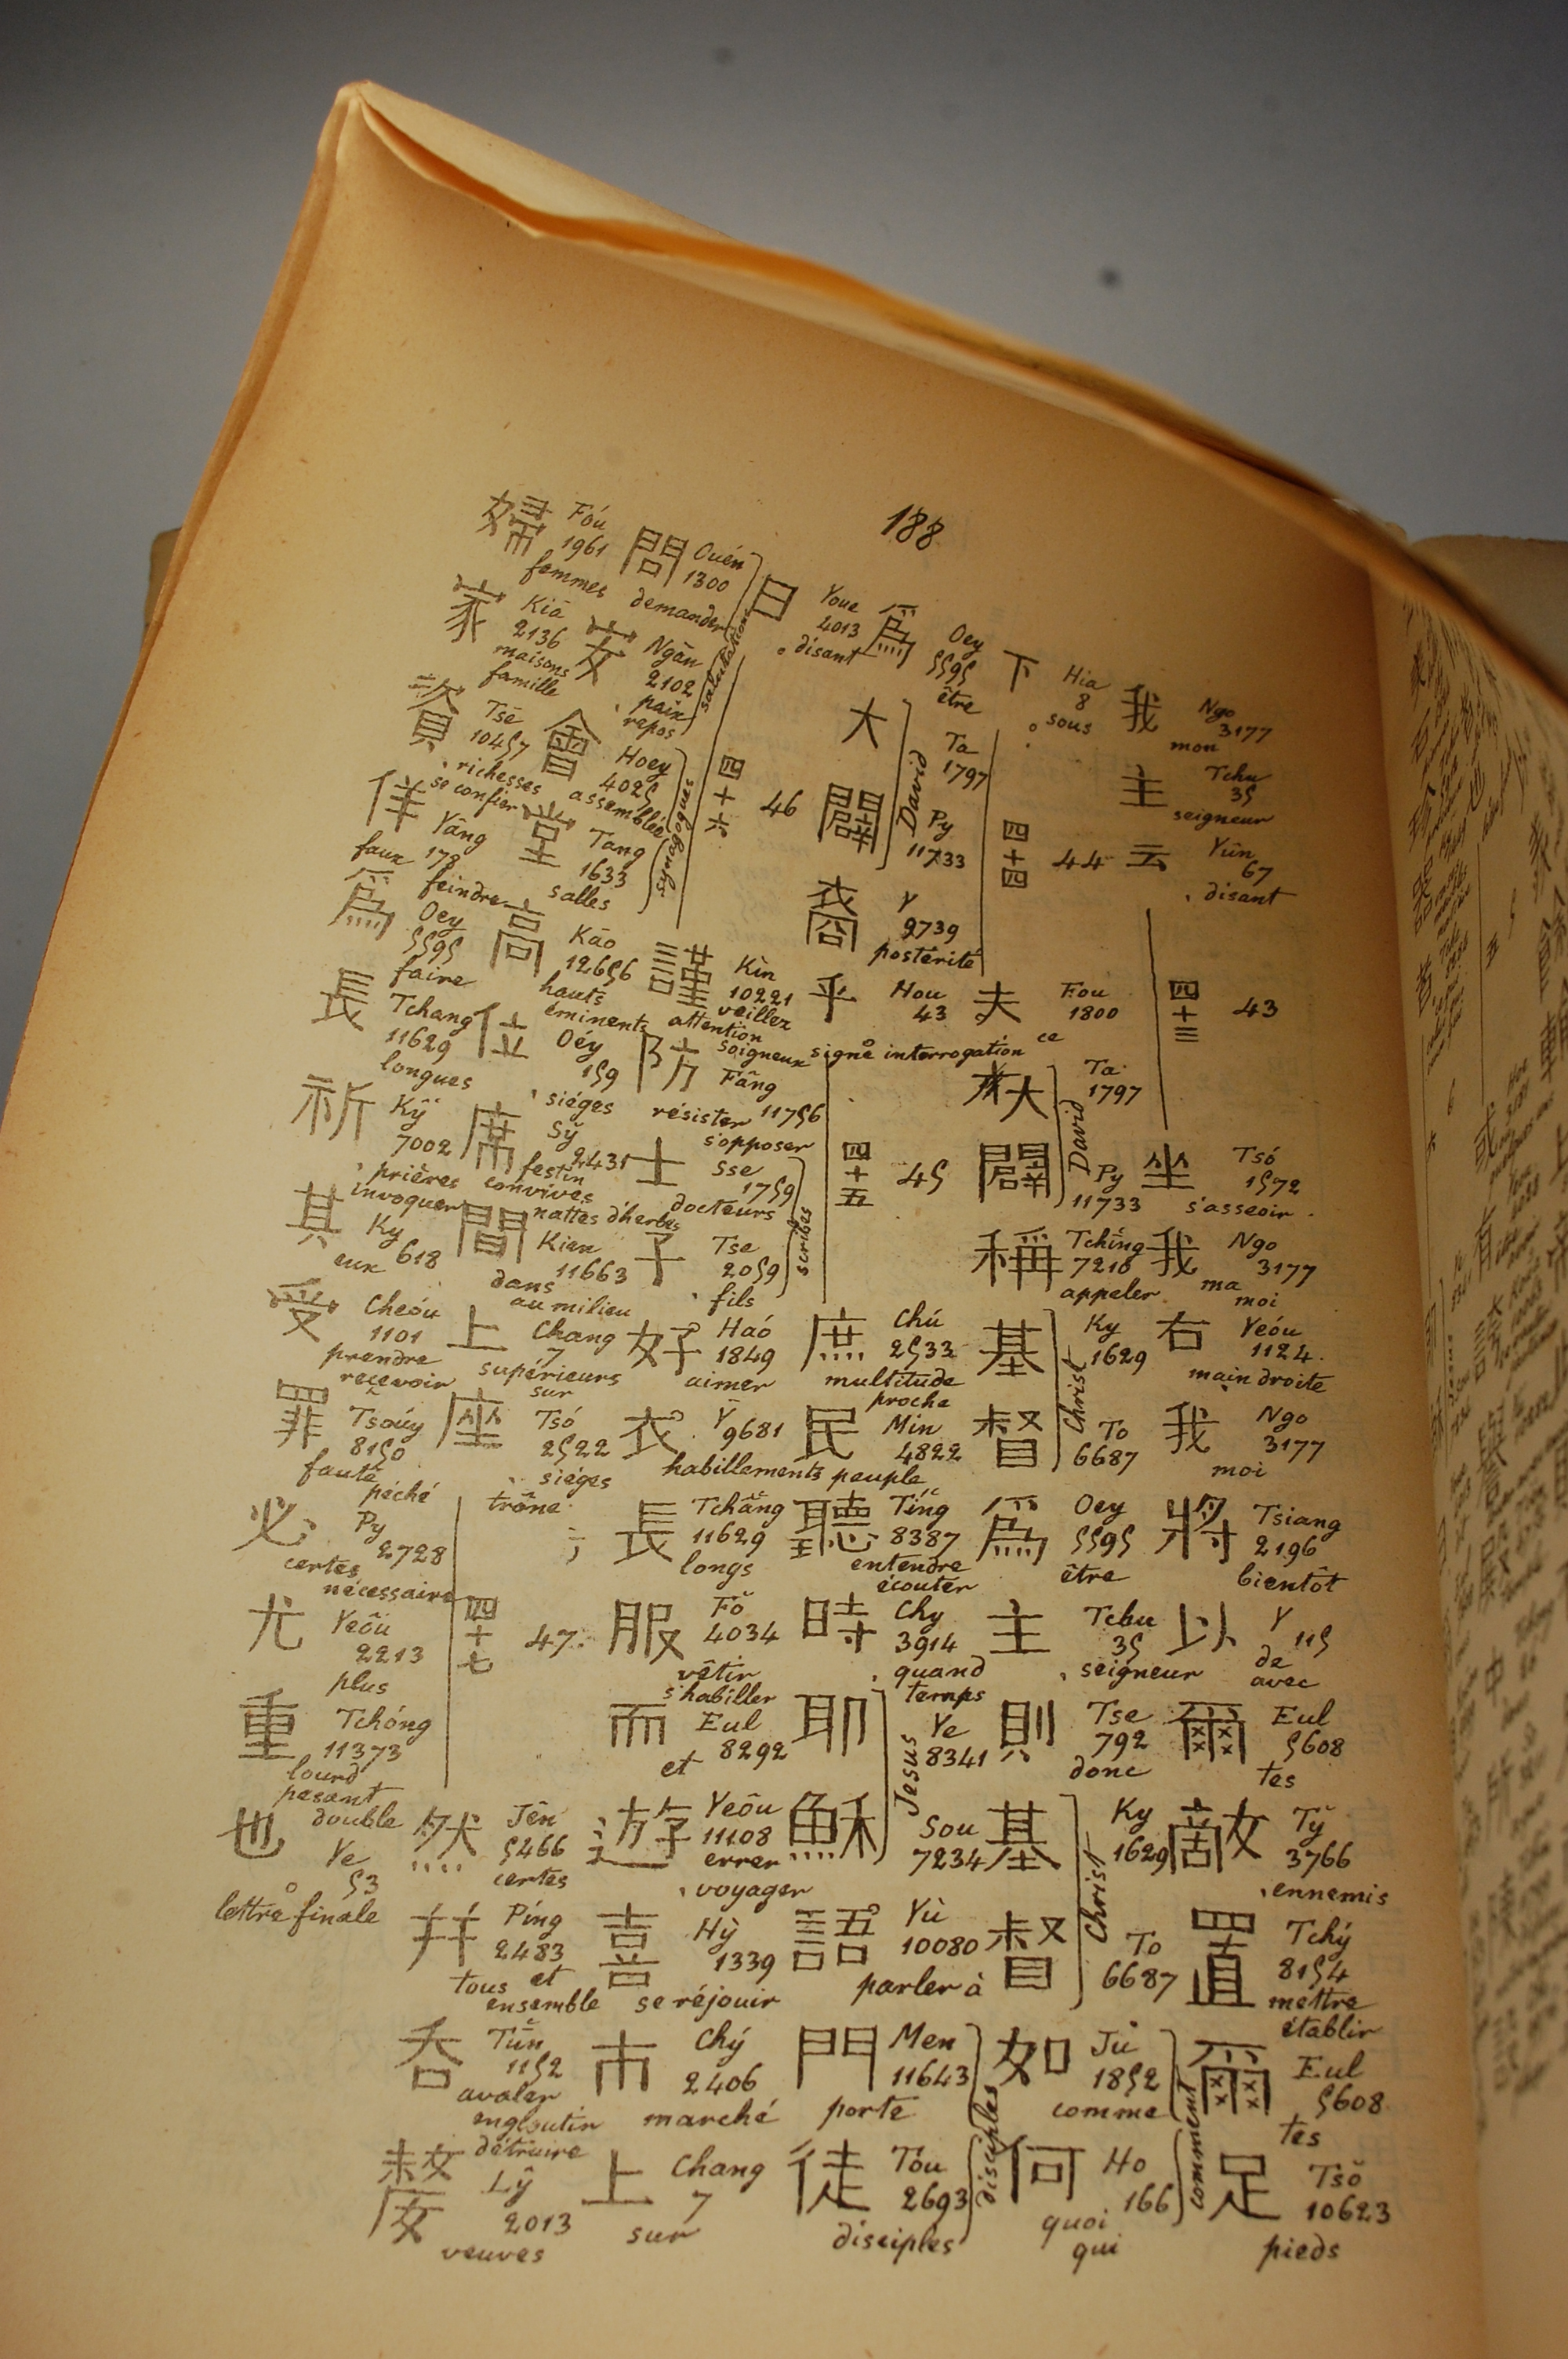 188
我 Ngo 3177 mon
主 Tchu 35 seigneur
云 Yûn 67 disant
四十三 43
坐 Tsó 1572 s'asseoir
我 Ngo 3177 ma moi
右 Yeóu 1124 main droite
我 Ngo 3177 moi
將 Tsiang 2196 bientôt
以 Y 115 de avec
爾 Eul 5608 tes
敵 Tў 3766 ennemis
置 Tchý 8154 mettre établir
爾 Eul 5608 tes
足 Tsŏ 10623 pieds
下 Hia 8 sous
四十四 44
夫 Fou 1800 ce
大 Ta 1797
闢 Py 11733
David
稱 Tching 7210 appeler
基 Ky 1629
督 To 6687
Christ
爲 Oey 5595 être
主 Tchu 35 seigneur
則 Tse 792 donc
基 Ky 1629
督 To 6687
Christ
如 Jû 1852 comme
何 Ho 166 quoi qui
comment
爲 Oey 5595 être
大 Ta 1797
闢 Py 11733
David
裔 Y 9739 postérité
乎 Hou 43 signe interrogation
四十五 45
庶 Chú 2533 multitude proche
民 Min 4822 peuple
聽 Tíng 8387 entendre écouter
時 Chy 3914 quand temps
耶 Ye 8341
穌 Sou 7234
Jesus
語 Yù 10080 parler à
門 Men 11643 porte
徒 Tôu 2693 disciples
disciples
曰 Youe 4013 disant
四十六 46
謹 Kìn 10221 veillez attention soigneux
防 Fâng 11756 résister s'opposer
士 Sse 1759 docteurs
子 Tse 2059 fils
scribes
好 Haó 1849 aimer
衣 Y 9681 habillements
長 Tchâng 11629 longs
服 Fŏ 4034 vêtir s'habiller
而 Eul 8292 et
遊 Yeôu 11108 errer voyager
喜 Hỳ 1339 se réjouir
市 Chý 2406 marché
上 Chang 7 sur
問 Ouén 1300 demander
安 Ngān 2102 paix repos
salutations
會 Hoey 4025 assemblée
堂 Tang 1633 salles
synagogues
高 Kāo 12656 hauts éminents
位 Oéy 159 siéges
席 Sў 2431 festin convives nattes d'herbes
間 Kien 11663 dans au milieu
上 Chang 7 supérieurs sur
座 Tsó 2522 siéges trône
四十七 47
然 Jên 5466 certes
幷 Píng 2483 tous et ensemble
吞 Tūn 1152 avaler engloutir détruire
嫠 Lŷ 2013 veuves
婦 Fóu 1961 femmes
家 Kiā 2136 maisons famille
資 Tsē 10457 richesses se confier
佯 Yâng 178 faux feindre
爲 Oey 5595 faire
長 Tchang 11629 longues
祈 Kŷ 7002 prières invoquer
其 Ky 618 eux
受 Cheóu 1101 prendre recevoir
罪 Tsoúy 8150 faute péché
必 Py 2728 certes nécessaire
尤 Yeôu 2213 plus
重 Tchóng 11373 lourd pesant double
也 Ye 53 lettre finale